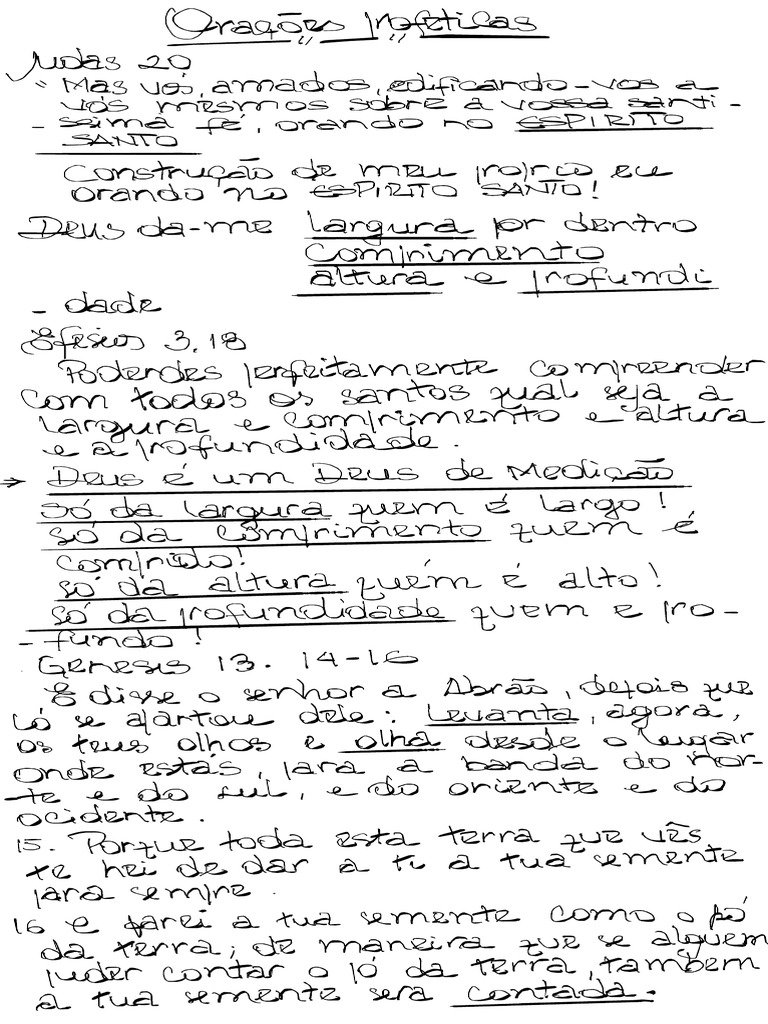 Orações profeticas
Judas 20
"Mas vós, amados, edificando-vos a
vós mesmos sobre a vossa santi-
-ssima fé, orando no ESPIRITO
SANTO
Construção de meu proprio eu
orando no ESPIRITO SANTO!
Deus da-me largura por dentro
Comprimento
altura e profundi
- dade
Efesios 3,18
Poderdes perfeitamente compreender
com todos os santos qual seja a
largura e comprimento e altura
e a profundidade.
→ Deus é um Deus de Medição
só da largura quem é largo!
só da comprimento quem é
comprido!
só da altura quem é alto!
só da profundidade quem e pro-
- fundo!
Genesis 13. 14-16
E disse o senhor a Abrão, depois que
Ló se apartou dele: Levanta, agora,
os teus olhos e olha desde o lugar
onde estás, para a banda do nor-
-te e do sul, e do oriente e do
ocidente.
15. Porque toda esta terra que vês
te hei de dar a ti a tua semente
para sempre.
16 e farei a tua semente como o pó
da terra; de maneira que se alguem
puder contar o pó da terra, tambem
a tua semente sera contada.